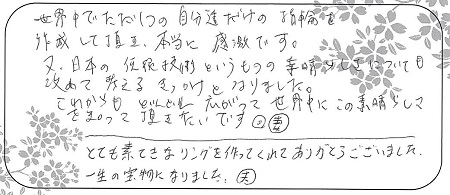 世界中でただ1つの自分達だけの指輪を
作成して頂き、本当に感激です。
又、日本の伝統技術というものの素晴らしさについても
改めて考えるきっかけとなりました。
これからもどんどん広がって世界中にこの素晴らしさ
を
って頂きたいです。妻
とても素てきなリングを作ってくれてありがとうございました。
一生の宝物になりました。夫